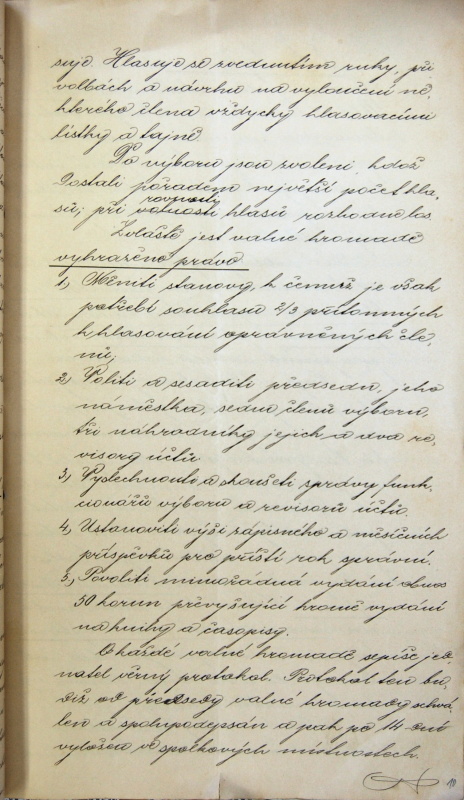 suje. Hlasuje se zvednutím ruky, při
volbách a návrhu na vyloučení ně-
kterého člena vždycky hlasovacími
lístky a tajně.
Do výboru jsou zvoleni, kdož
dostali pořadem největší počet hla-
sů; při rovnosti hlasů rozhodne los.
Zvláště jest valné hromadě
vyhraženo právo
1, Měniti stanovy, k čemuž je však
potřebí souhlasu 2/3 přítomných
k hlasování oprávněných čle-
nů;
2, Voliti a sesaditi předsedu, jeho
náměstka, sedm členů výboru,
tři náhradníky jejich a dva re-
visory účtů.
3, Vyslechnouti a zkoušeti zprávy funk-
cionářů výboru a revisorů účtů.
4, Ustanoviti výši zápisného a měsíčních
příspěvků pro příští rok správní.
5, Povoliti mimořádná vydání obnos
50 korun převyšující kromě vydání
na knihy a časopisy.
O každé valné hromadě sepíše jed-
natel věrný protokol. Protokol ten bu-
diž od předsedy valné hromady schvá-
len a spolupodepsán a pak po 14 dní
vyložen ve spolkových místnostech.
10